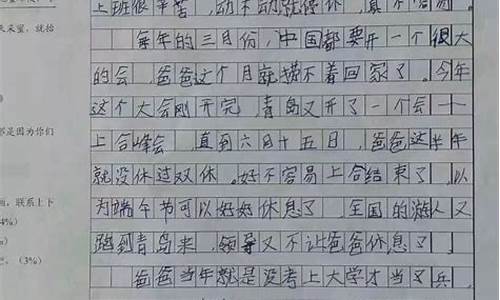 上班很辛苦，动不动就停休，真不容易。
每年的三月份，中国都要开一个很大
的会，爸爸这个月就捞不着回家了。今年
这个大会刚开完，青岛又开了一个会——
上合峰会，直到六月十五日，爸爸这半年
就没休过双休。好不容易上合结束了，以
为端午节可以好好休息了，全国的游人又
跑到青岛来，领导又不让爸爸休息了。
爸爸当年就是没考上大学才当了兵，
都是因为你们
联系上下
4%）
（3%）